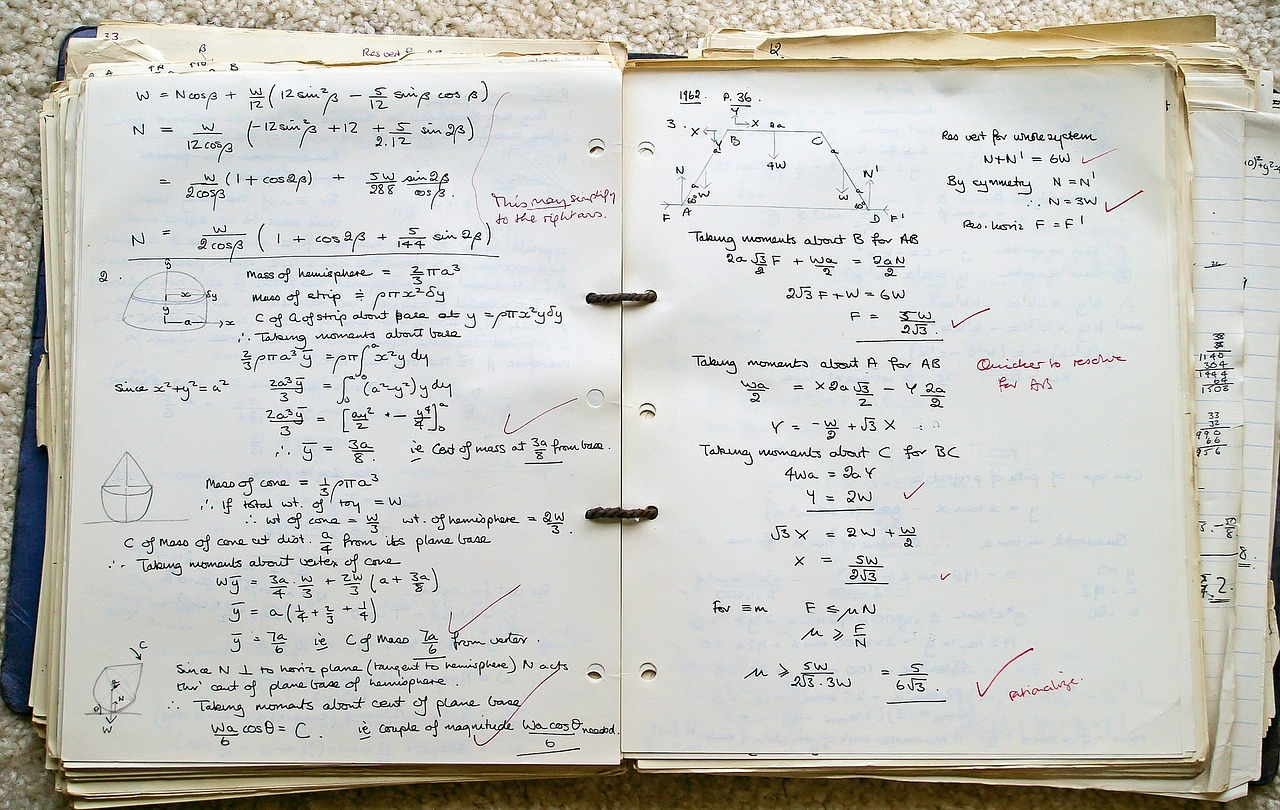 33.
β
Res vert
B
W = Ncosβ + W/12 (12sin²β − 5/12 sinβ cosβ)
N = W/12cosβ (−12sin²β + 12 + 5/2.12 sin2β)
= W/2cosβ (1 + cos2β) + 5W/288 sin2β/cosβ.
This may simplify
to the right ans.
N = W/2cosβ (1 + cos2β + 5/144 sin2β)
2.
y
x
δy
y
a
x
Mass of hemisphere = 2/3 πa³
Mass of strip ≑ ρπx²δy
C of G of strip about base at y = ρπx²yδy
∴ Taking moments about base
2/3 ρπa³ȳ = ρπ∫₀ᵃ x²y dy
Since x²+y²=a² 2a³ȳ/3 = ∫₀ᵃ (a²−y²)y dy
2a³ȳ/3 = [ay²/2 − y⁴/4]₀ᵃ
∴ ȳ = 3a/8 ie Cent of mass at 3a/8 from base.
Mass of cone = 1/3 ρπa³
∴ If total wt. of toy = W
∴ wt of cone = W/3 wt. of hemisphere = 2W/3.
C of Mass of cone at dist. a/4 from its plane base
∴ Taking moments about vertex of cone
Wȳ = 3a/4 . W/3 + 2W/3 (a + 3a/8)
ȳ = a(1/4 + 2/3 + 1/4)
ȳ = 7a/6 ie C of Mass 7a/6 from vertex.
C
θ
N
W
Since N ⊥ to horiz plane (tangent to hemisphere) N acts
thro' cent of plane base of hemisphere.
∴ Taking moments about cent of plane base
Wa/6 cosθ = C. ie couple of magnitude Wa cosθ/6 needed.
12.
1962. P. 36.
3.
Y
X
X
2a
B
C
Y
a
a
4W
N
N'
a
a
W
W
60°
60°
F
A
D
F'
Res vert for whole system
N+N' = 6W
By symmetry N = N'
∴ N = 3W
Res. horiz F = F'
Taking moments about B for AB
2a √3/2 F + Wa/2 = 2aN/2
2√3 F + W = 6W
F = 5W/2√3.
Taking moments about A for AB
Quicker to resolve
for AB
Wa/2 = X 2a √3/2 − Y 2a/2
Y = −W/2 + √3 X
Taking moments about C for BC
4Wa = 2aY
Y = 2W
√3 X = 2W + W/2
X = 5W/2√3
For ≡m F ≤ μN
μ ≥ F/N
μ ≥ 5W/2√3.3W = 5/6√3.
rationalize.
38
38
1140
304
1444
64
1508
33
32
990
66
956